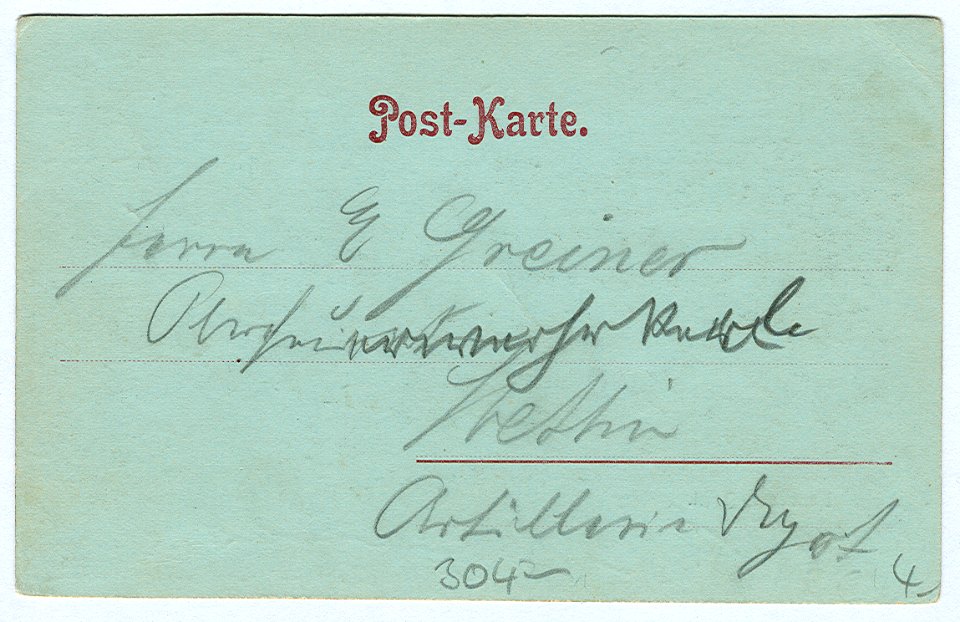 Post-Karte.
Herrn E Greiner
Stettin
Artillerie Depot
304
4